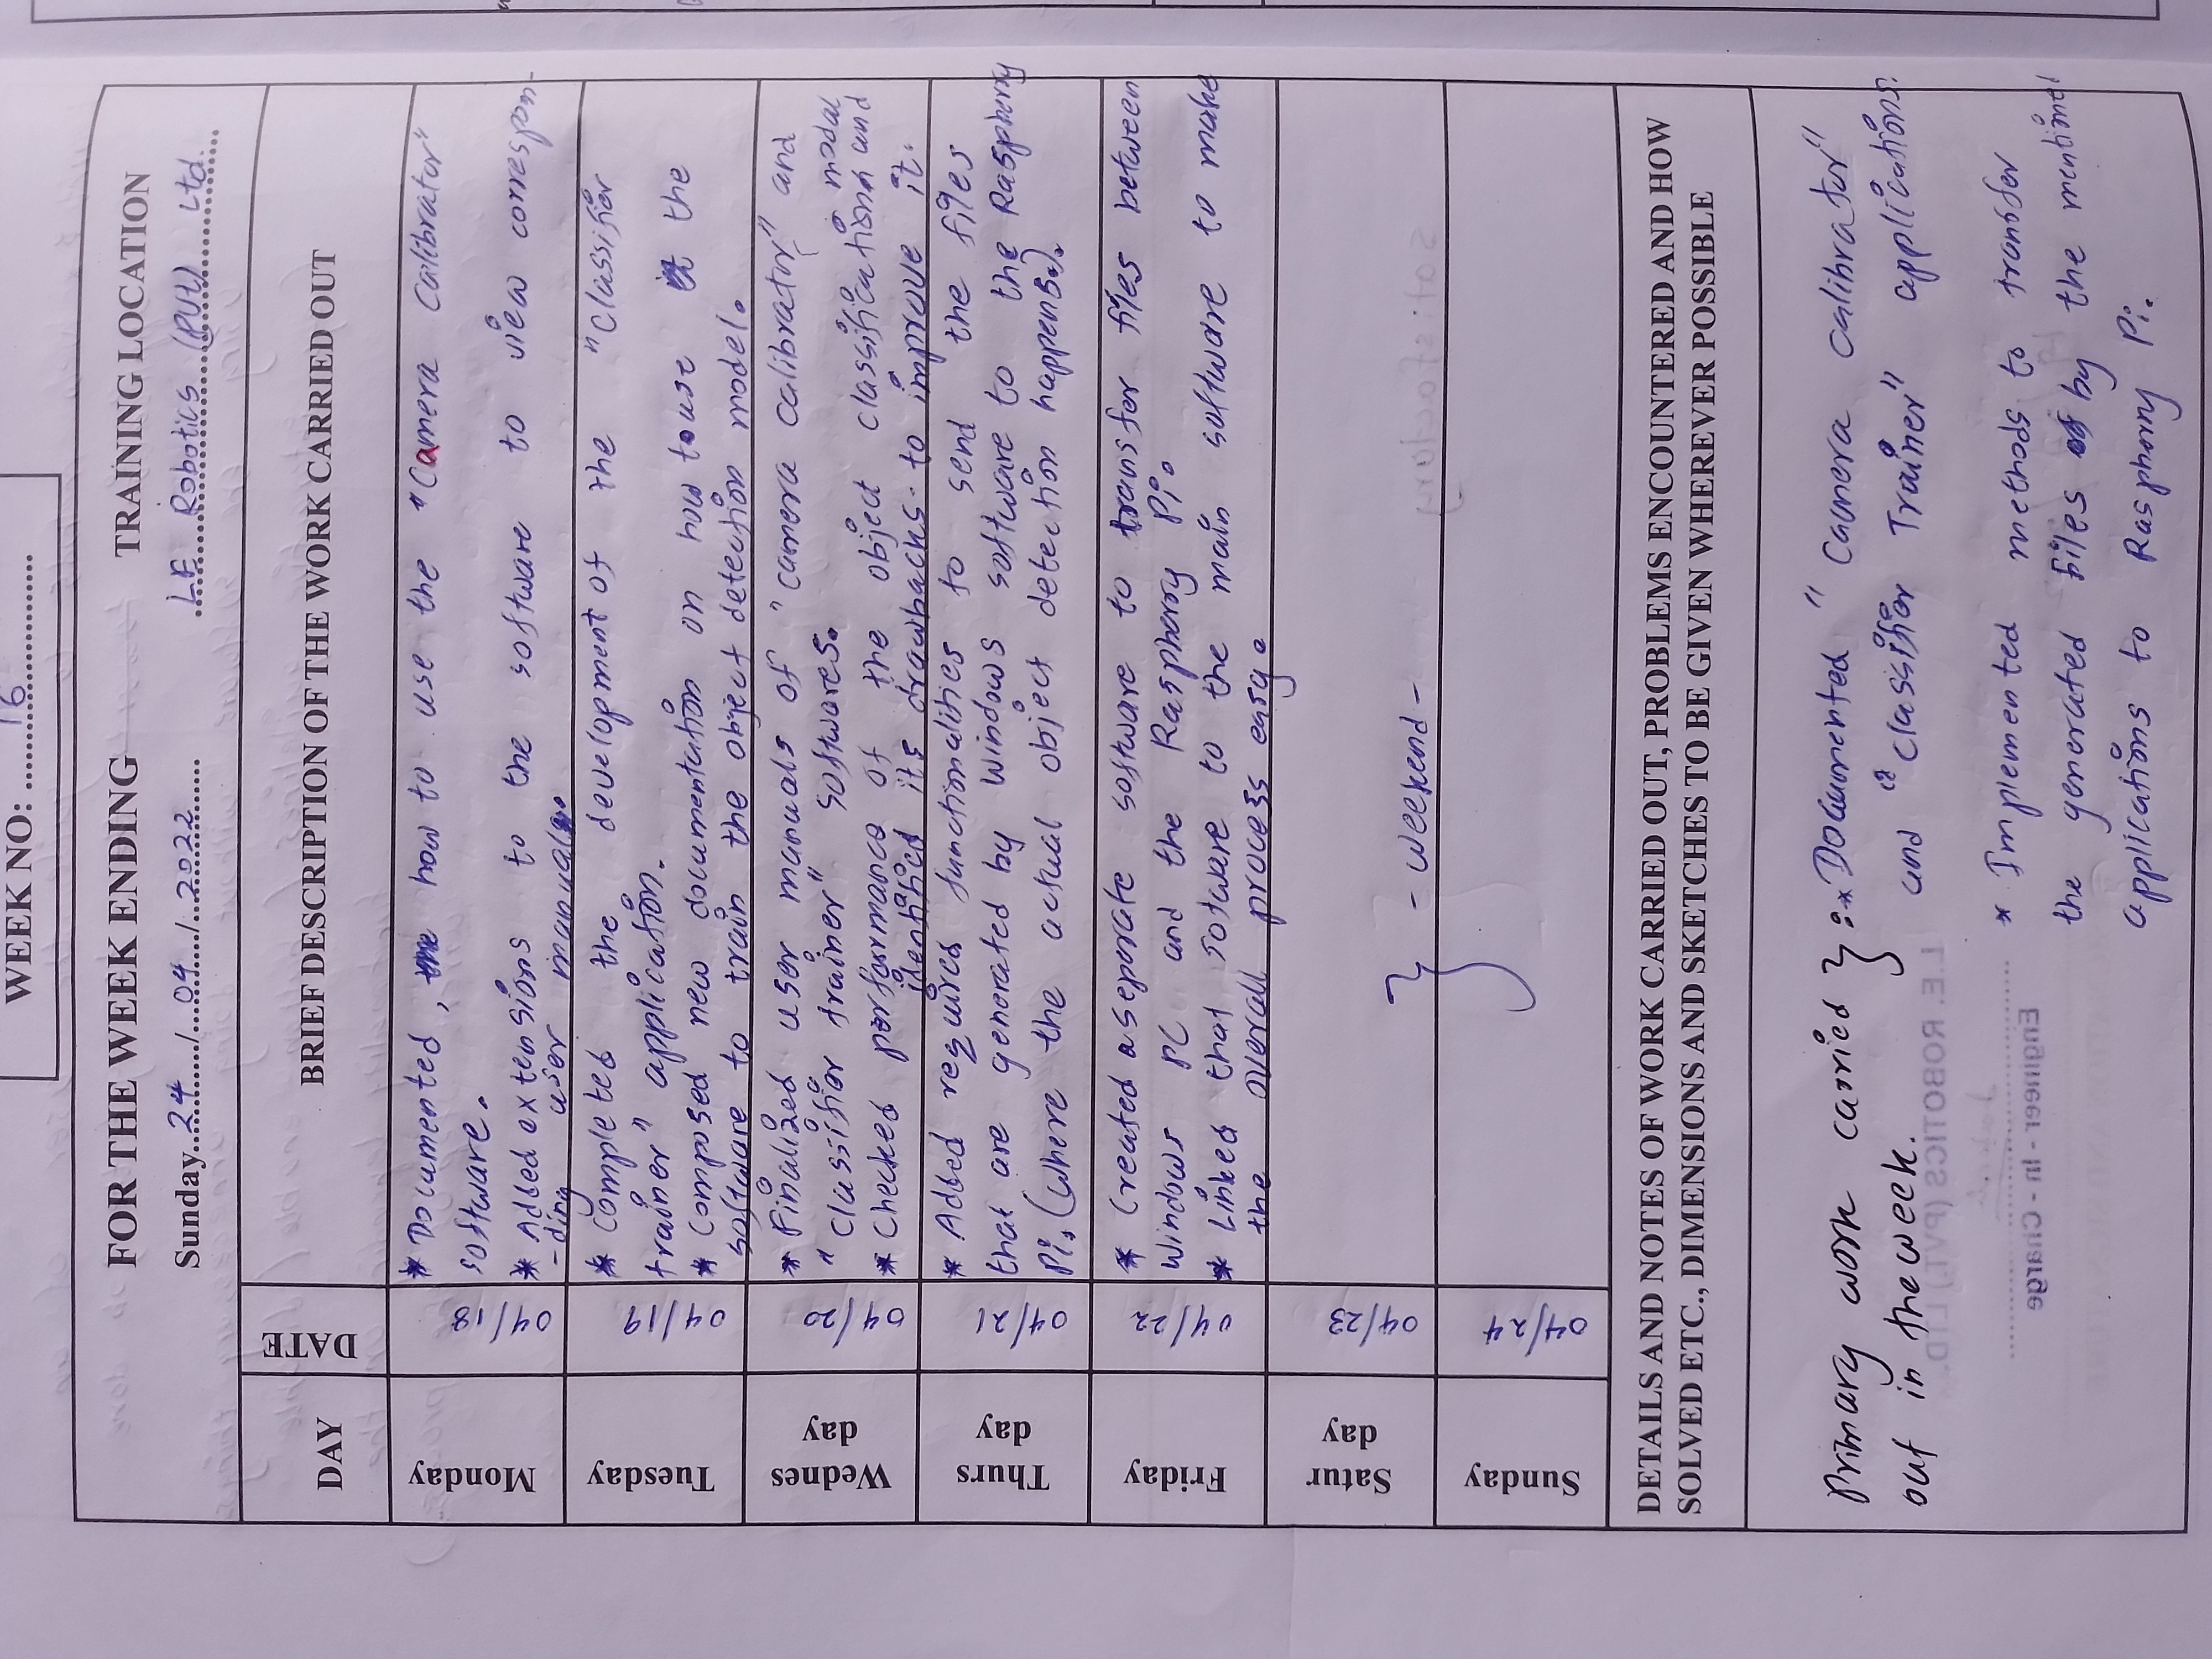 WEEK NO: 16
FOR THE WEEK ENDING
TRAINING LOCATION
Sunday 24 / 04 / 2022
LE Robotics (PVt) Ltd.
DAY
DATE
BRIEF DESCRIPTION OF THE WORK CARRIED OUT
Monday
04/18
* Documented, how to use the "Camera Calibrator"
software.
* Added extensions to the software to view correspon-
-ding user manual.
Tuesday
04/19
* Completed the development of the "Classifier
trainer" application.
* Composed new documentation on how to use the
software to train the object detection model.
Wednes
day
04/20
* Finalized user manuals of "camera calibrator" and
"Classifier trainer" softwares.
* Checked performance of the object classification modal and
identified its drawbacks to improve it.
Thurs
day
04/21
* Added required functionalities to send the files
that are generated by Windows software to the Raspberry
Pi. (Where the actual object detection happens.).
Friday
04/22
* Created a seperate software to transfer files between
Windows PC and the Raspberry Pi.
* Linked that sotware to the main software to make
the overall process easy.
Satur
day
04/23
- Weekend -
Sunday
04/24
DETAILS AND NOTES OF WORK CARRIED OUT, PROBLEMS ENCOUNTERED AND HOW
SOLVED ETC., DIMENSIONS AND SKETCHES TO BE GIVEN WHEREVER POSSIBLE
Primary work carried } :* Documented "Camera calibrator"
out in the week. and "Classifier Trainer" applications.
* Implemented methods to transfer
the generated files by the mentioned
applications to Raspberry Pi.